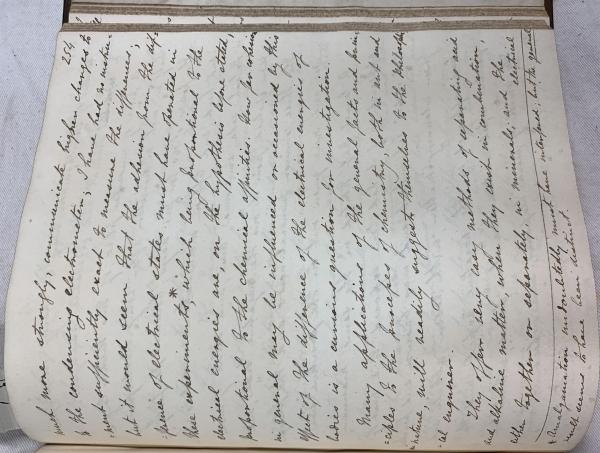 254
much more strongly, communicate higher changes to
the condensing electrometer; I have had no instru=
=ment sufficiently exact to measure the differences;
but it would seem that the adhesion from the diffe
=rence of electrical states, must have operated in
these experiments,* which being proportional to the
electrical energies are, on the hypothesis before stated,
proportional to the chemical affinities. How far cohesion
in general may be influenced or occasioned by this
effect of the difference of the electrical energies of
bodies is a curious question for investigation.
Many applications of the general facts and prin
=ciples to the processes of chemistry, both in art and
=nature, will readily suggest themselves to the
=cal enquirer.
They offer very easy methods of separating acid
and alkaline matter, when they exist in combination,
either together or separately, in minerals; and the electrical
* Amalgamation undoubtedly must have interfered: but the general
result seems to have been distinct.